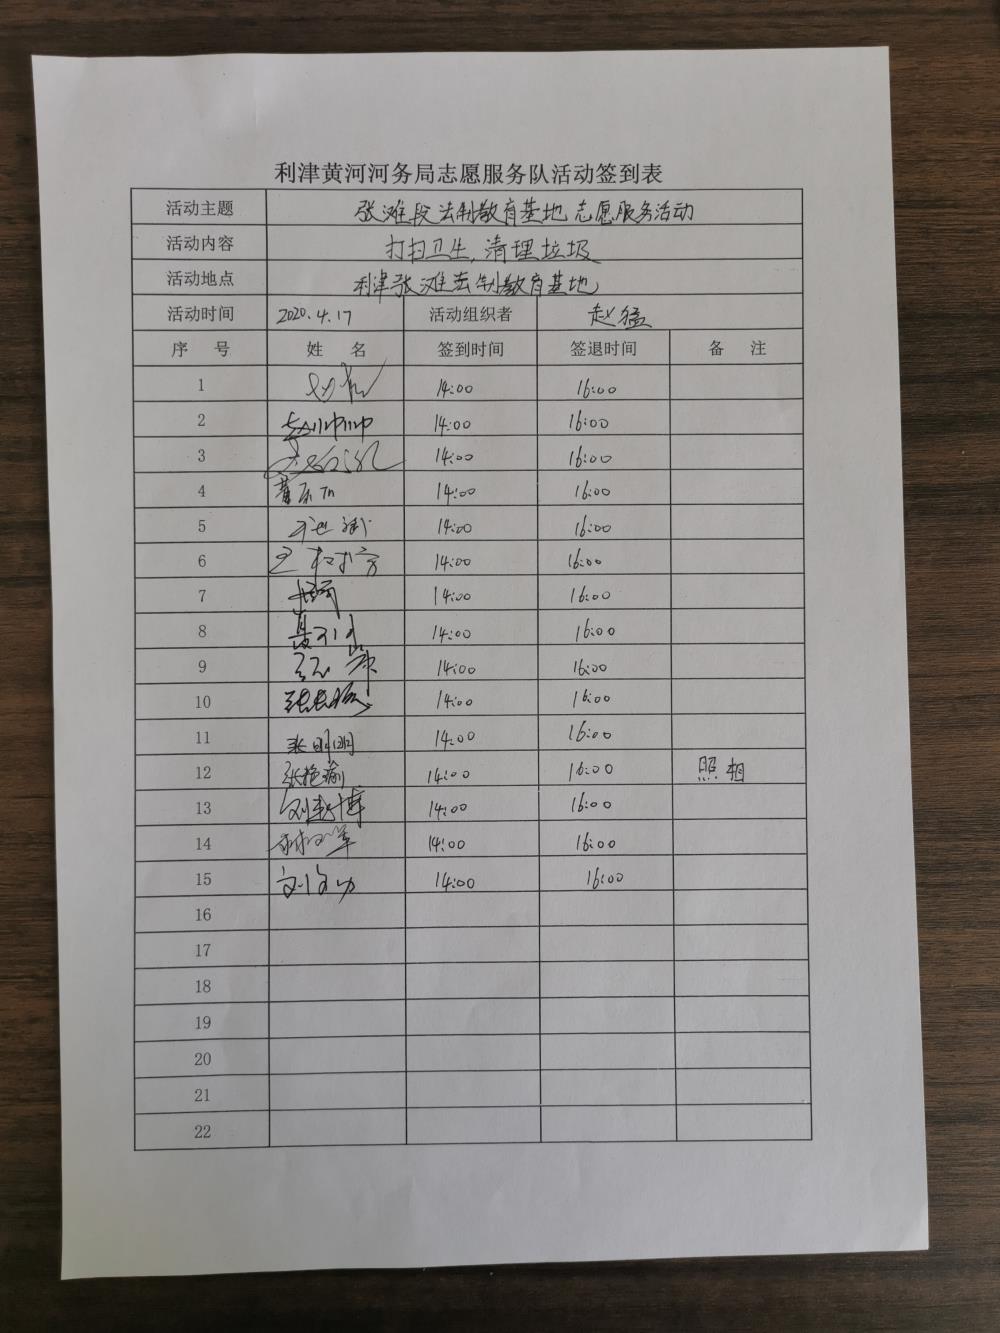 利津黄河河务局志愿服务队活动签到表
活动主题 张滩段法制教育基地志愿服务活动
活动内容 打扫卫生,清理垃圾
活动地点 利津张滩法制教育基地
活动时间 2020.4.17 活动组织者 赵猛
序 号 姓 名 签到时间 签退时间 备 注
1 14:00 16:00
2 14:00 16:00
3 14:00 16:00
4 14:00 16:00
5 14:00 16:00
6 14:00 16:00
7 14:00 16:00
8 14:00 16:00
9 14:00 16:00
10 14:00 16:00
11 张明明 14:00 16:00
12 张艳瑜 14:00 16:00 照相
13 14:00 16:00
14 14:00 16:00
15 14:00 16:00
16
17
18
19
20
21
22